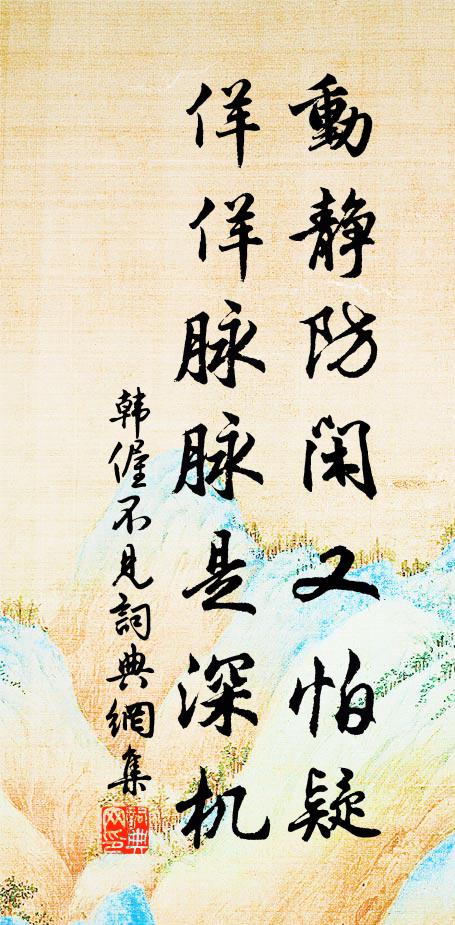 動静防闲又怕疑
佯佯脉脉是深机
韩偓不见詞典網集
詞典網印